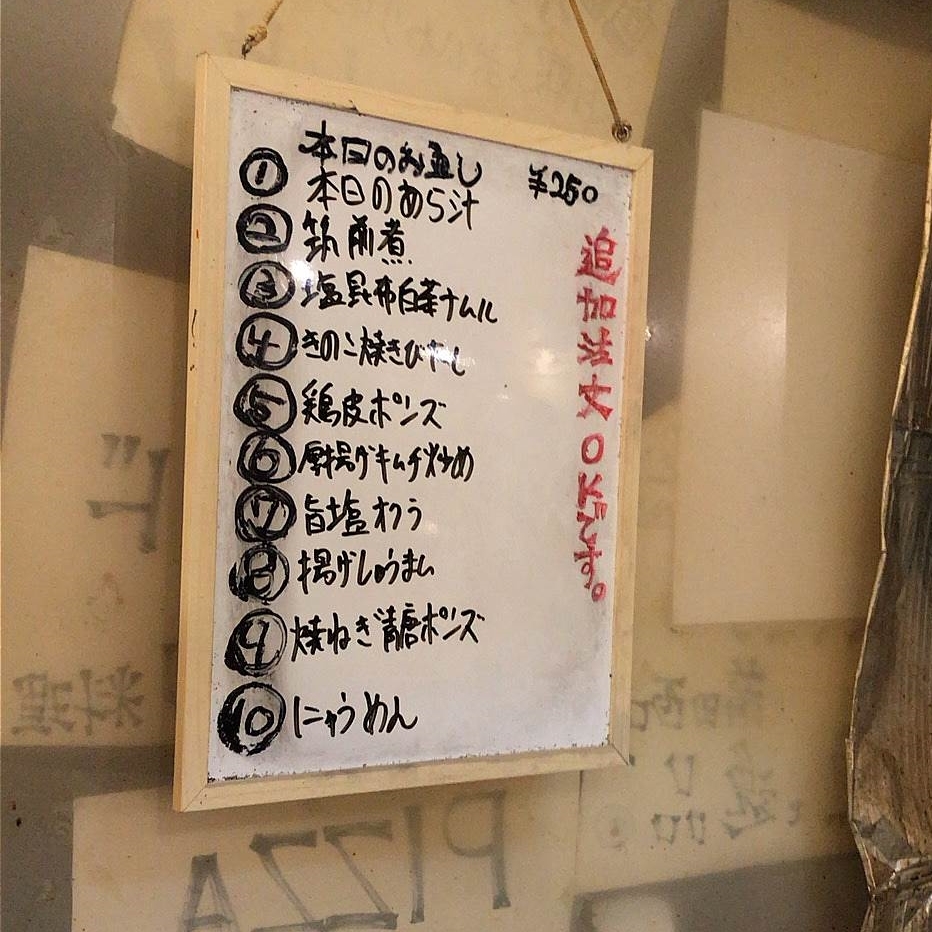 本日のお通し ¥250
① 本日のあら汁
② 筑前煮
③ 塩昆布白菜ナムル
④ きのこ焼きびたし
⑤ 鶏皮ポンズ
⑥ 厚揚げキムチ炒め
⑦ 旨塩オクラ
⑧ 揚げしゅうまい
⑨ 焼ねぎ青唐ポンズ
⑩ にゅうめん
追加注文OKです。
料理
PIZZA